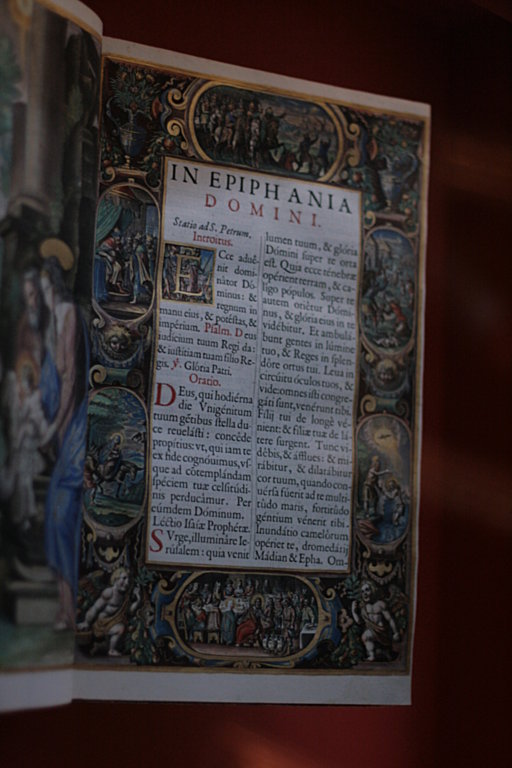 IN EPIPHANIA
DOMINI.
Statio ad S. Petrum.
Introitus.
Ecce aduē-
nit domi-
nator Dó-
minus: &
regnum in
manu eius, & potéstas, &
impérium. Psalm. Deus
iudicium tuum Regi da:
& iustitiam tuam filio Re-
gis. ℣. Glória Patri.
Oratio.
DEus, qui hodiérna
die Vnigénitum
tuum géntibus stella du-
ce reuelásti: concéde
propítius: vt, qui iam te
ex fide cognóuimus, vs-
que ad cōtemplándam
spéciem tuæ celsitúdi-
nis perducámur. Per
eúmdem Dóminum.
Léctio Isaíæ Prophétæ.
SVrge, illumináre Ie-
rúsalem: quia venit
lumen tuum, & glória
Dómini super te orta
est. Quia ecce ténebræ
opérient terram, & ca-
lígo pópulos. Super te
autem oriétur Dómi-
nus, & glória eius in te
vidébitur. Et ambulá-
bunt gentes in lúmine
tuo, & Reges in splen-
dóre ortus tui. Leua in
circúitu óculos tuos, &
vide: omnes isti congre-
gáti sunt, venérunt tibi.
Fílij tui de longè vé-
nient: & fíliæ tuæ de lá-
tere surgent. Tunc vi-
débis, & áfflues: & mi-
rábitur, & dilatábitur
cor tuum, quando con-
uérsa fúerit ad te multi-
túdo maris, fortitúdo
géntium vénerit tibi.
Inundátio camelórum
opériet te, dromedárij
Mádian & Epha. Om-